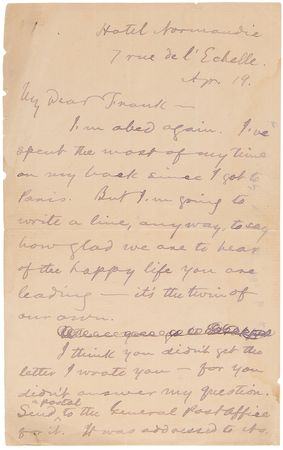 Hotel Normandie
7 rue de l'Echelle.
Ap. 19.
My Dear Frank —
I'm abed again. I've
spent the most of my time
on my back since I got to
Paris. But I'm going to
write a line, anyway, to say
how glad we are to hear
of the happy life you are
leading — it's the twin of
our own.
I think you didn't get the
letter I wrote you — for you
didn't answer my question.
Send ^a postal to the General Post Office
for it. It was addressed to its